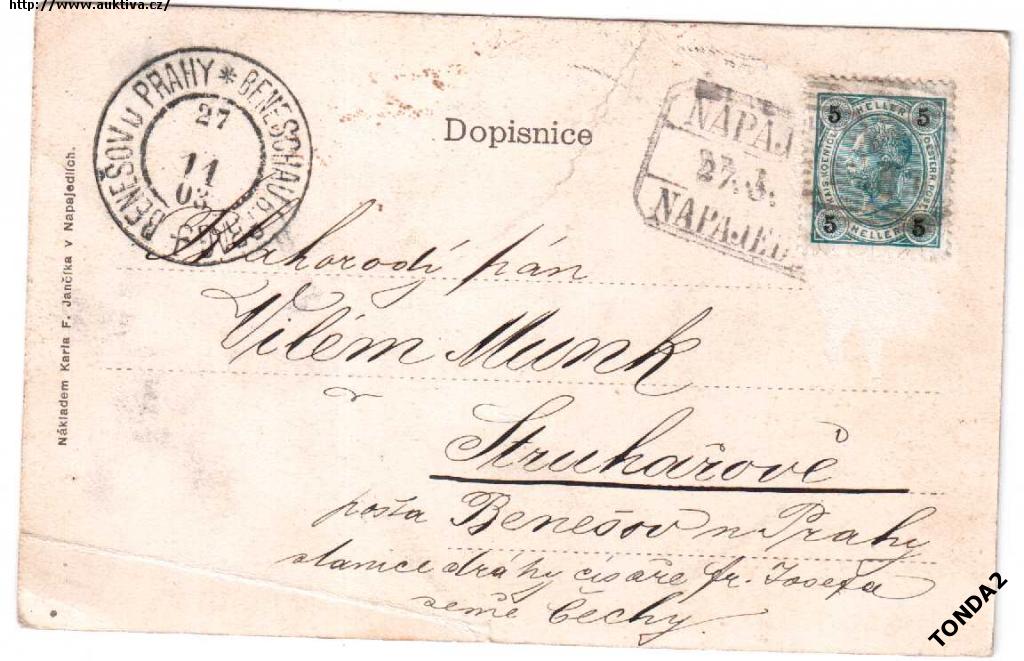 http://www.auktiva.cz/
BENEŠOV U PRAHY * BENESCHAU
27
11
03
Dopisnice
NAPAJ
27.
NAPAJED
5 HELLER 5
5 HELLER 5
Nákladem Karla F. Jančíka v Napajedlích.
pán
Vilém Munk
v
Struhařově
pošta Benešov u Prahy
stanice dráhy císaře fr. Josefa
země Čechy
TONDA2